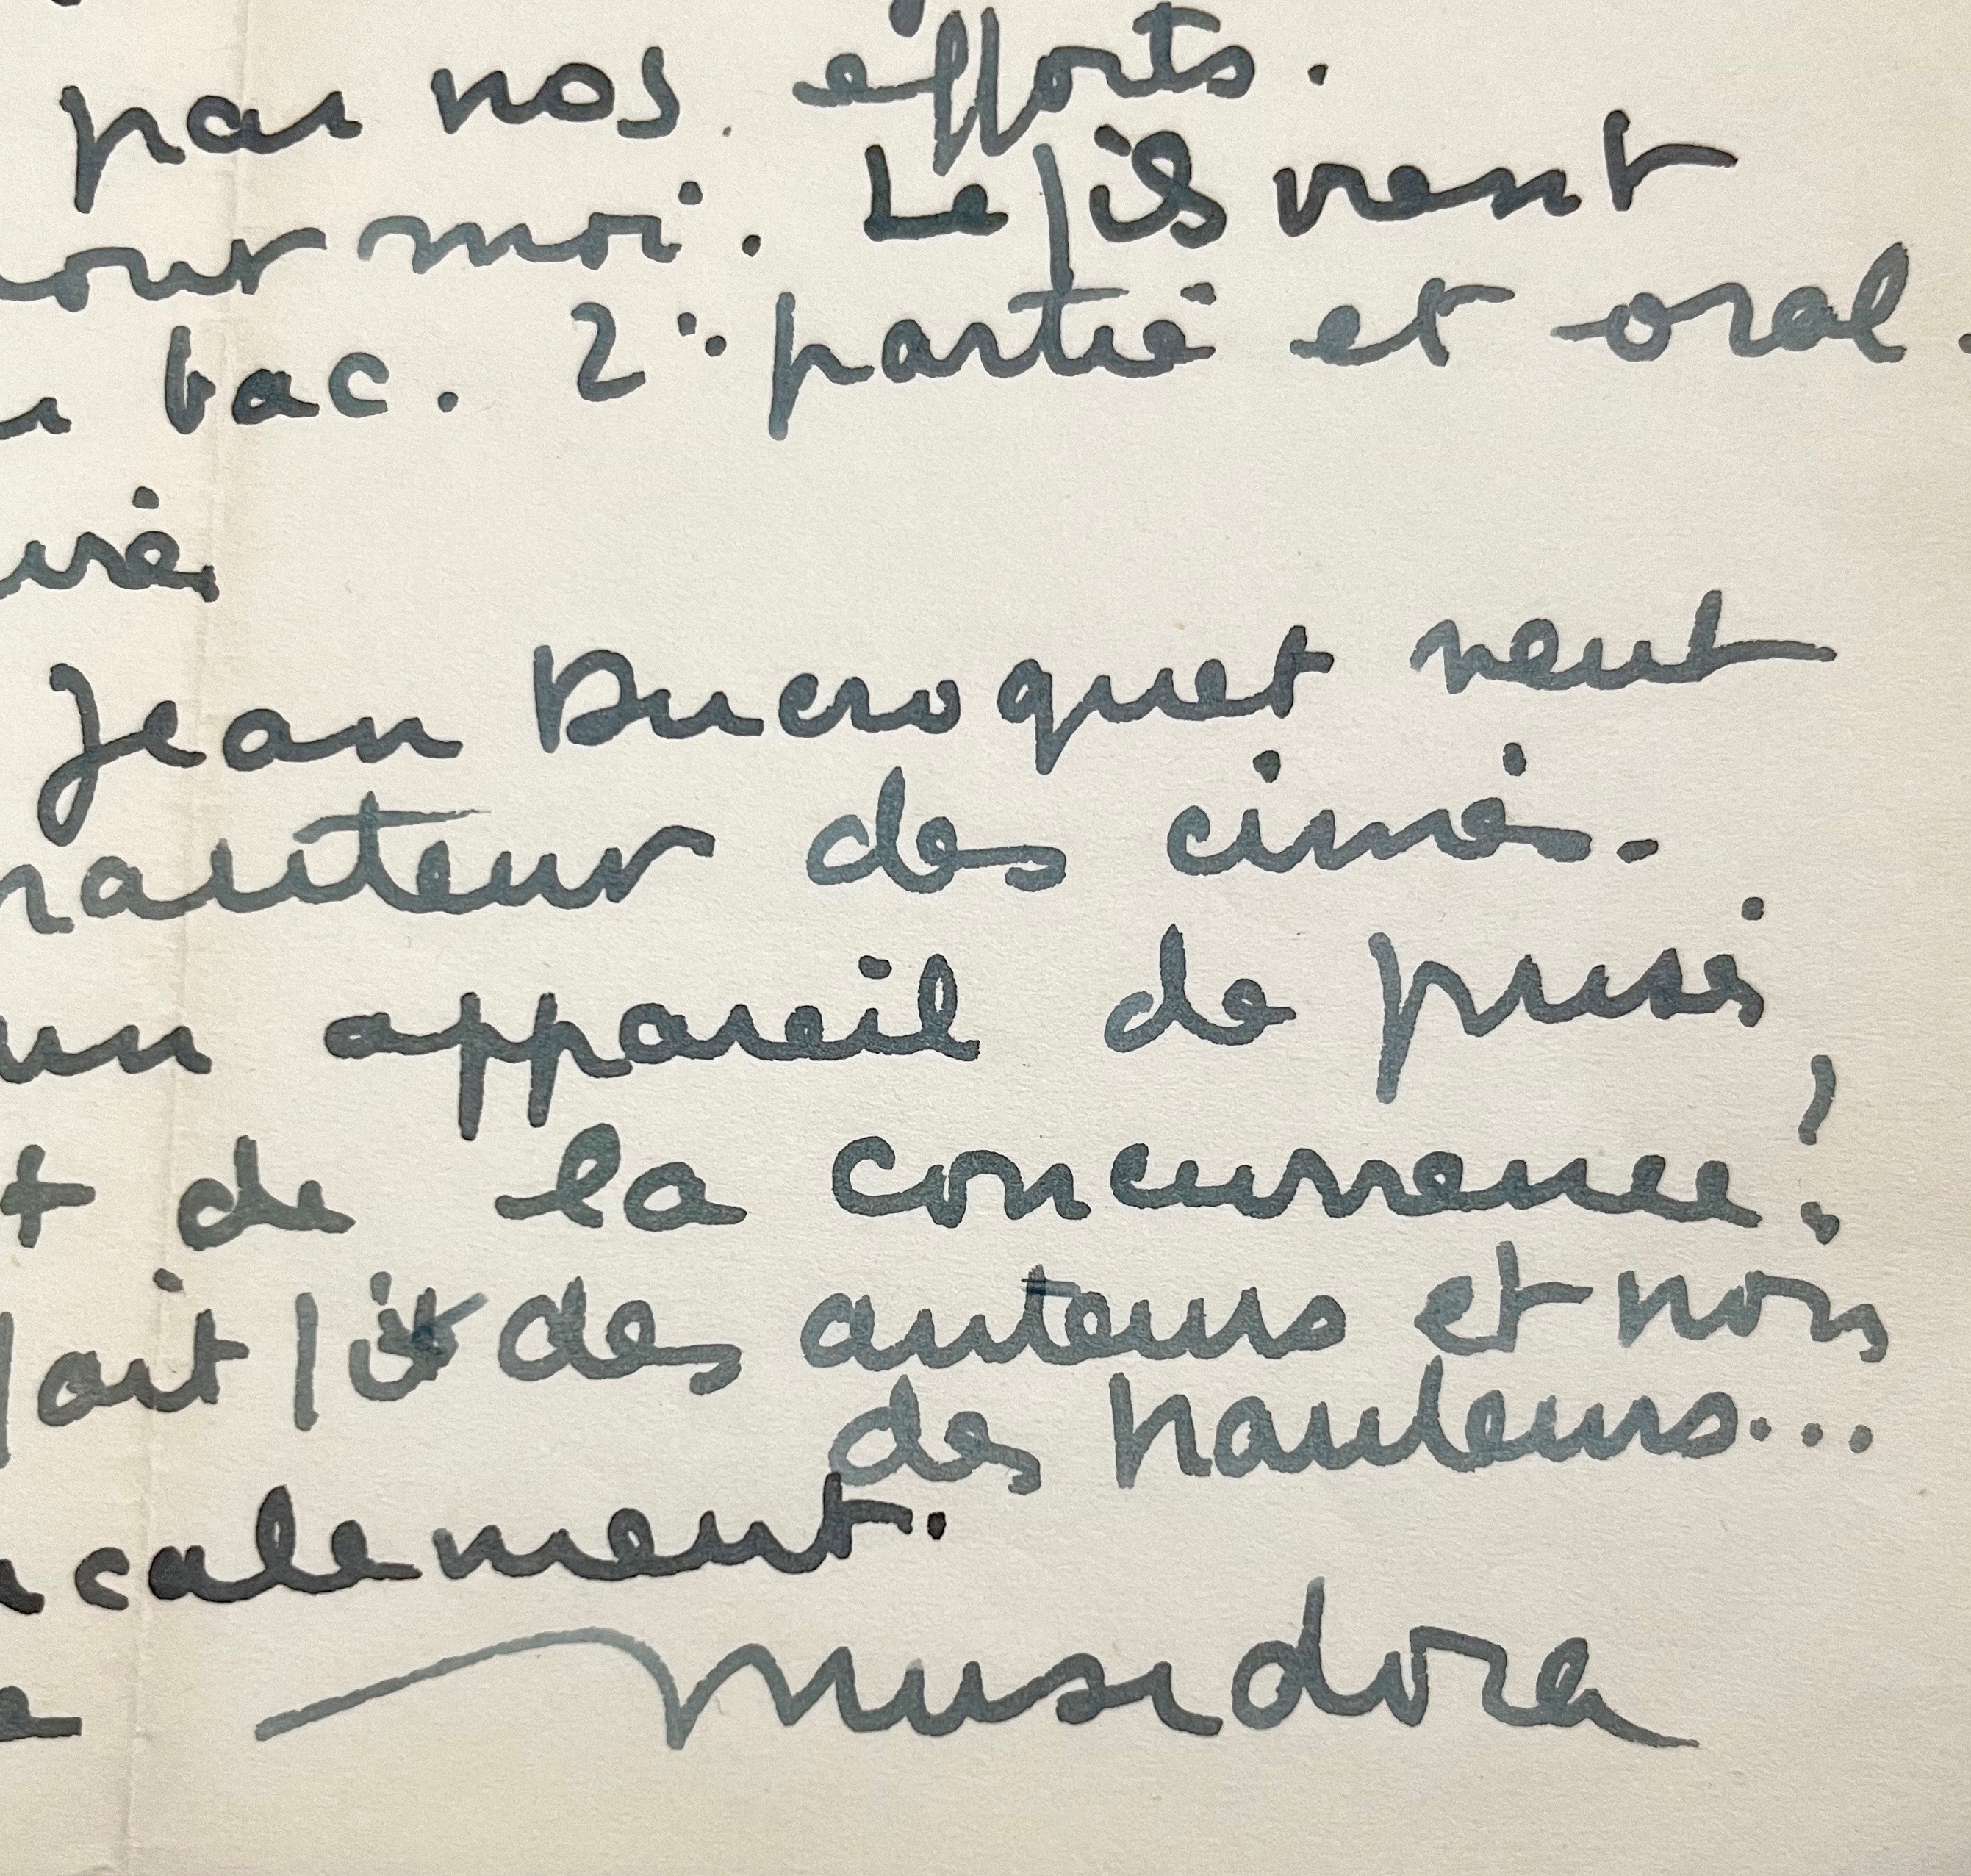 par nos efforts.
our moi. Le fils vient
bac. 2: partie et oral.
Jean Ducroquet veut
hauteur des cimes.
un appareil de prise
de la concurrence!
fait des auteurs et non
des hauteurs...
calement.
Musidora